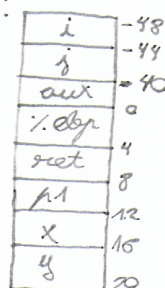 i -48
j -44
aux -40
%ebp 0
ret 4
p1 8
x 12
y 16
20